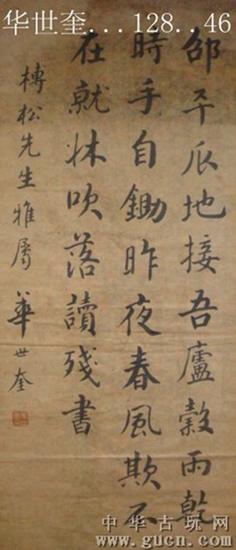 华世奎...128..46
邵平瓜地接吾廬穀雨乾
時手自鋤昨夜春風欺不
在就牀吹落讀殘書
榑松先生雅屬 華世奎
中华古玩网
www.gucn.com